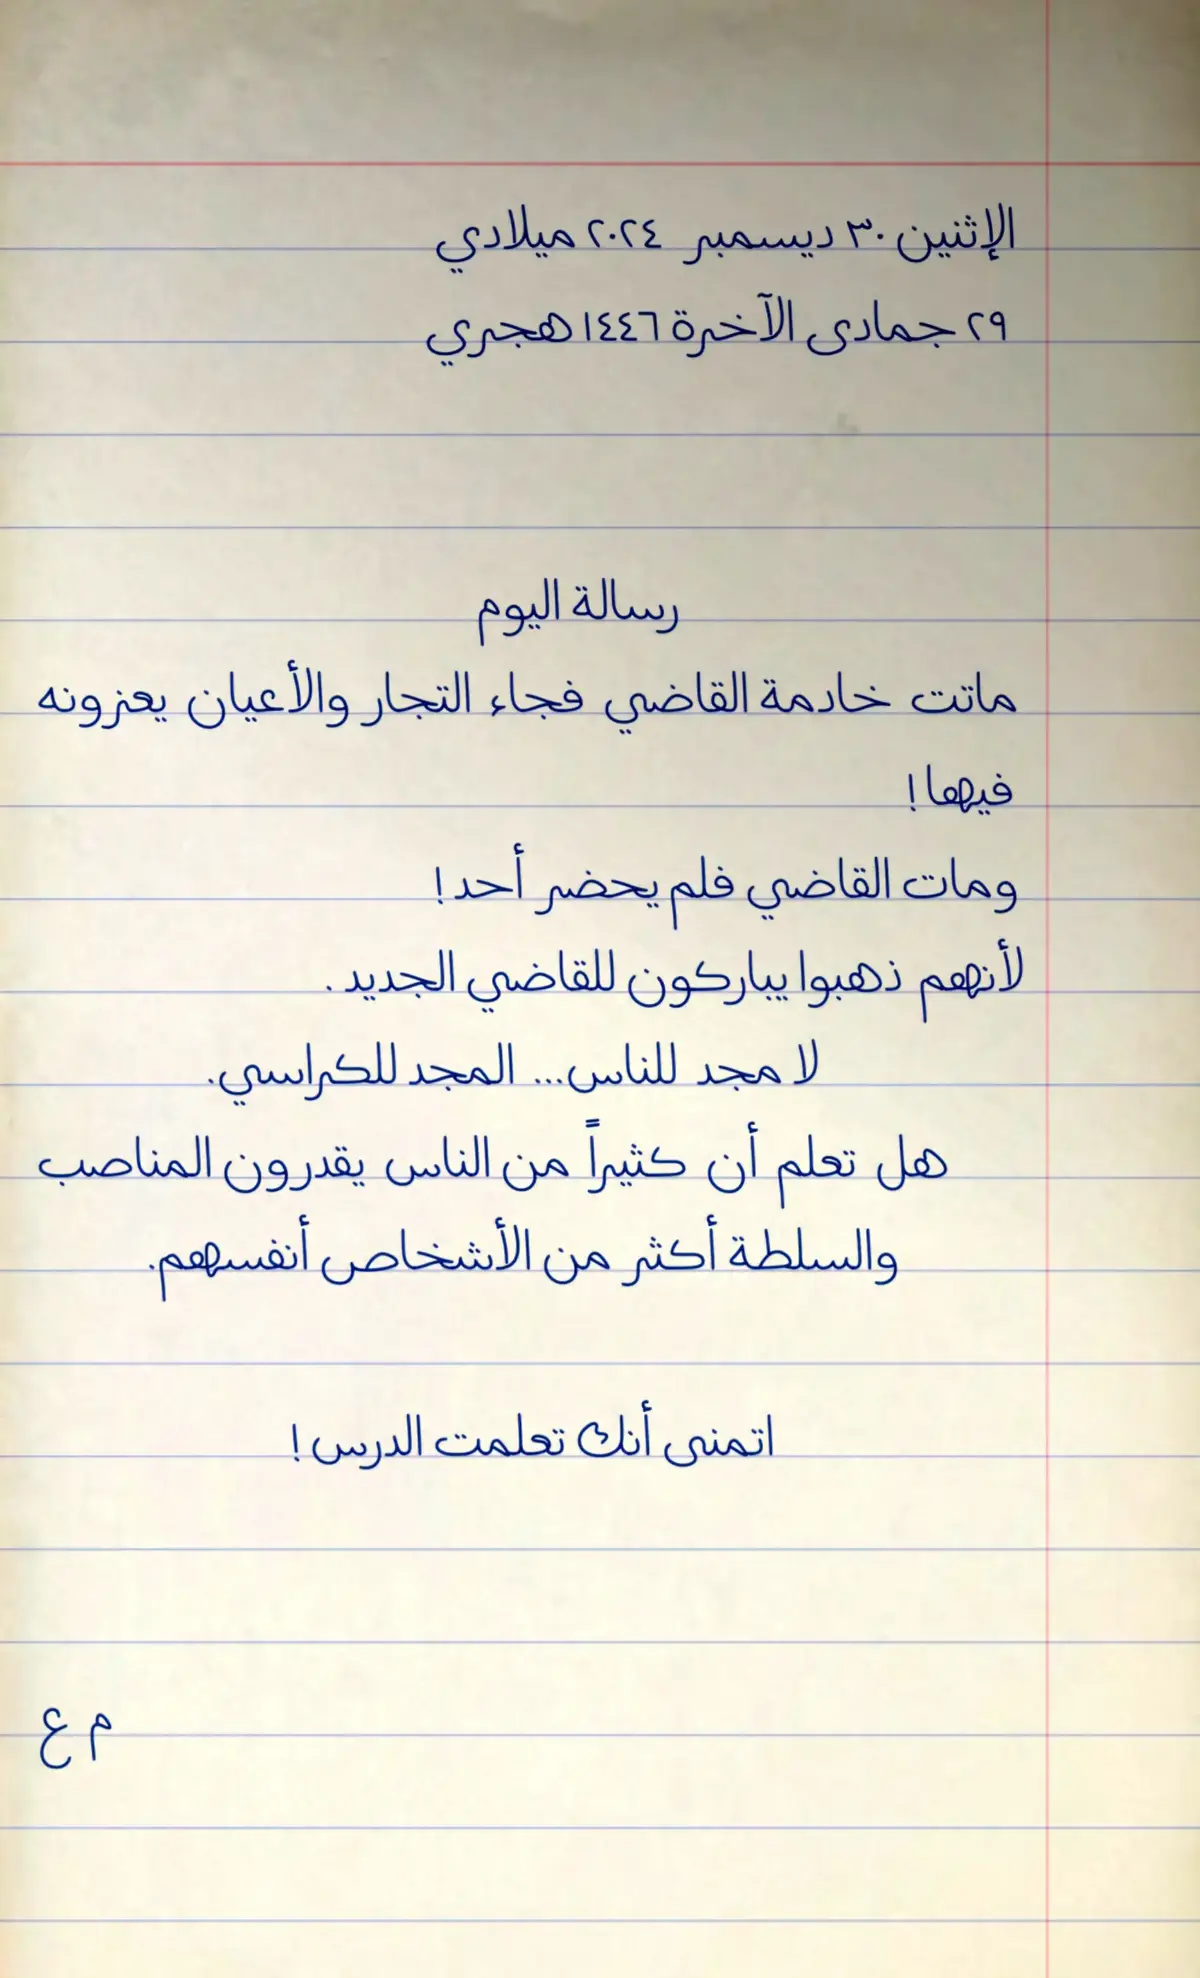 الإثنين ٣٠ ديسمبر ٢٠٢٤ ميلادي
٢٩ جمادى الآخرة ١٤٤٦ هجري
رسالة اليوم
ماتت خادمة القاضي فجاء التجار والأعيان يعزونه
فيها!
ومات القاضي فلم يحضر أحد!
لأنهم ذهبوا يباركون للقاضي الجديد.
لا مجد للناس... المجد للكراسي.
هل تعلم أن كثيراً من الناس يقدرون المناصب
والسلطة أكثر من الأشخاص أنفسهم.
اتمنى أنك تعلمت الدرس!
م ع